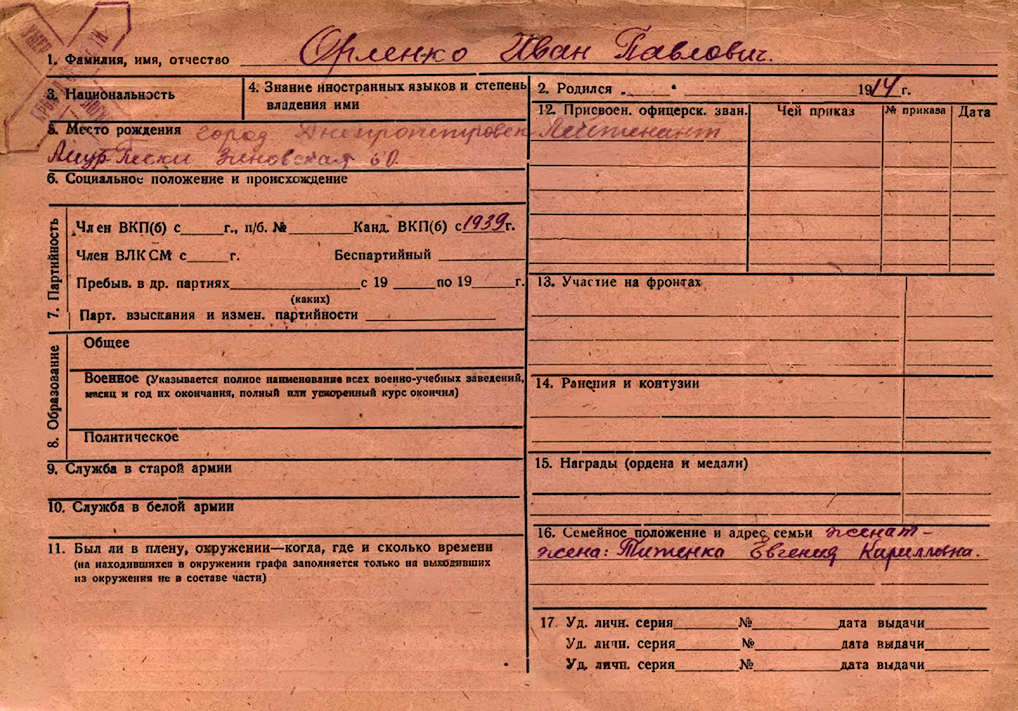 1. Фамилия, имя, отчество Орленко Иван Павлович.
3. Национальность
4. Знание иностранных языков и степень
владения ими
5. Место рождения город Днепропетровск
Амур-Пески Зиновская 60.
6. Социальное положение и происхождение
7. Партийность
Член ВКП(б) с г., п/б. № Канд. ВКП(б) с 1939 г.
Член ВЛКСМ с г. Беспартийный
Пребыв. в др. партиях с 19 по 19 г.
(каких)
Парт. взыскания и измен. партийности
8. Образование
Общее
Военное (Указывается полное наименование всех военно-учебных заведений,
месяц и год их окончания, полный или ускоренный курс окончил)
Политическое
9. Служба в старой армии
10. Служба в белой армии
11. Был ли в плену, окружении—когда, где и сколько времени
(на находившихся в окружении графа заполняется только на выходивших
из окружения не в составе части)
2. Родился " " 1914 г.
12. Присвоен. офицерск. зван. Чей приказ № приказа Дата
Лейтенант
13. Участие на фронтах
14. Ранения и контузии
15. Награды (ордена и медали)
16. Семейное положение и адрес семьи женат-
жена: Титенко Евгения Кирилловна.
17. Уд. личн. серия № дата выдачи
Уд. личн. серия № дата выдачи
Уд. личн. серия № дата выдачи